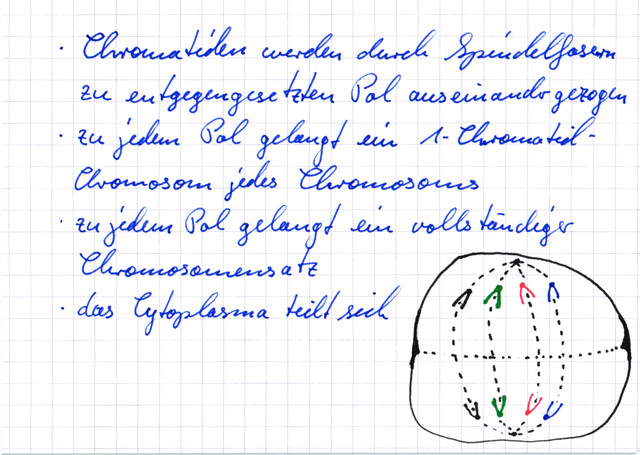 · Chromatiden werden durch Spindelfasern
zu entgegengesetzten Pol auseinandergezogen
· zu jedem Pol gelangt ein 1-Chromatid-
Chromosom jedes Chromosoms
· zu jedem Pol gelangt ein vollständiger
Chromosomensatz
· das Cytoplasma teilt sich